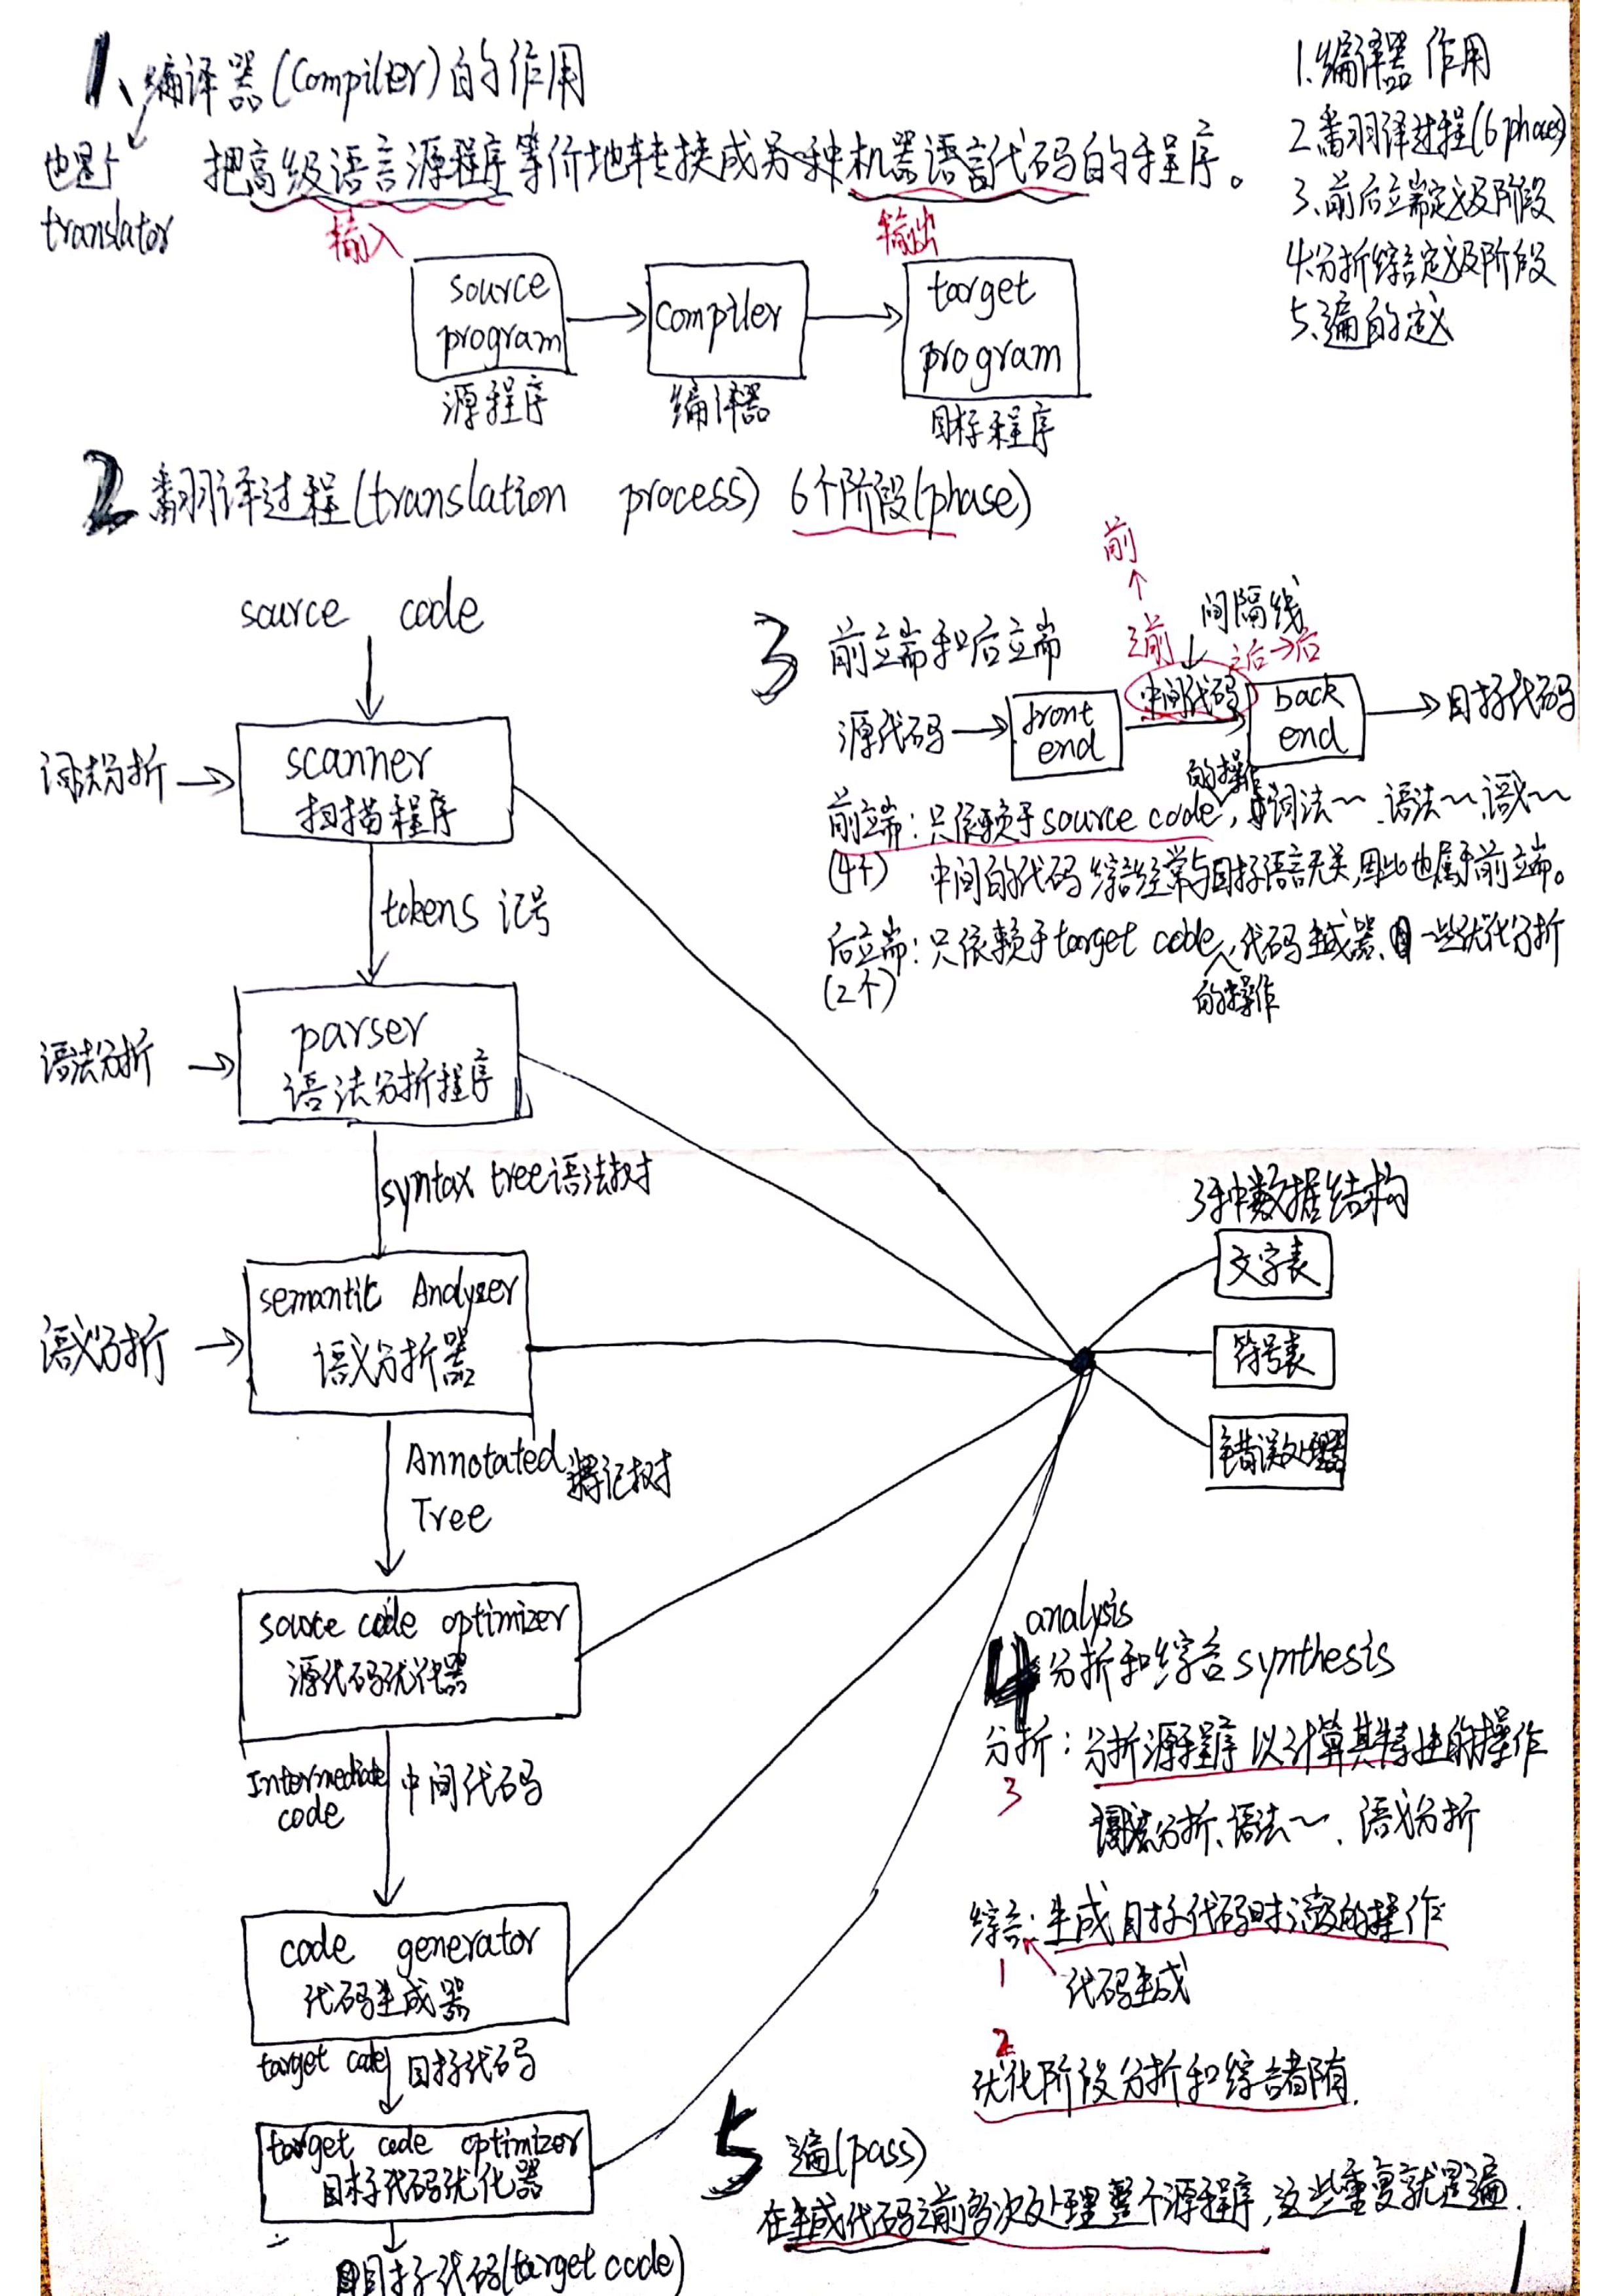 1、编译器(Compiler)的作用
也是个
translator
把高级语言源程序等价地转换成另一种机器语言代码的程序。
输入
输出
source
program
源程序
Compiler
编译器
target
program
目标程序
1.编译器作用
2.翻译过程(6 phases)
3、前后端定义及阶段
4.分析综合定义及阶段
5、遍的定义
2 翻译过程(translation process) 6个阶段(phase)
source code
词法分析
scanner
扫描程序
tokens 记号
语法分析
parser
语法分析程序
syntax tree 语法树
语义分析
semantic Analyzer
语义分析器
Annotated
Tree
注释树
source code optimizer
源代码优化器
Intermediate
code
中间代码
code generator
代码生成器
target code 目标代码
target code optimizer
目标代码优化器
目标代码(target code)
3 前端和后端
前
之前
间隔线
之后→后
源代码
front
end
中间代码
back
end
目标代码
前端:只依赖于source code的操作,词法~、语法~、语义~
(4个) 中间的代码综合经常与目标语言无关,因此也属于前端。
后端:只依赖于target code的操作,代码生成器、一些优化分析
(2个)
3种数据结构
文字表
符号表
错误处理器
4 analysis
分析和综合synthesis
分析:分析源程序以计算其特性的操作
3
词法分析、语法~、语义分析
综合:生成目标代码时涉及的操作
1
代码生成
2
优化阶段分析和综合都有.
5 遍(pass)
在生成代码之前多次处理整个源程序,这些重复就是遍.
1